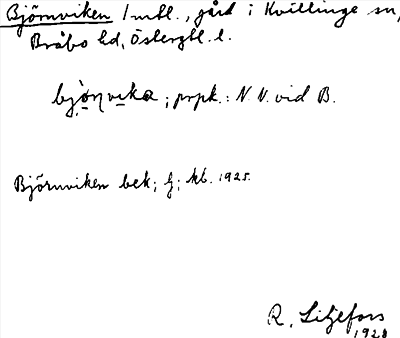 Björnviken 1 mtl., gård i Kvillinge sn,
Bråbo hd, Östergtl. l.
bjὼɳvika ; prpk.: N. N. vid B.
Björnviken bek; f; kb. 1925.
R. Liljefors
1928